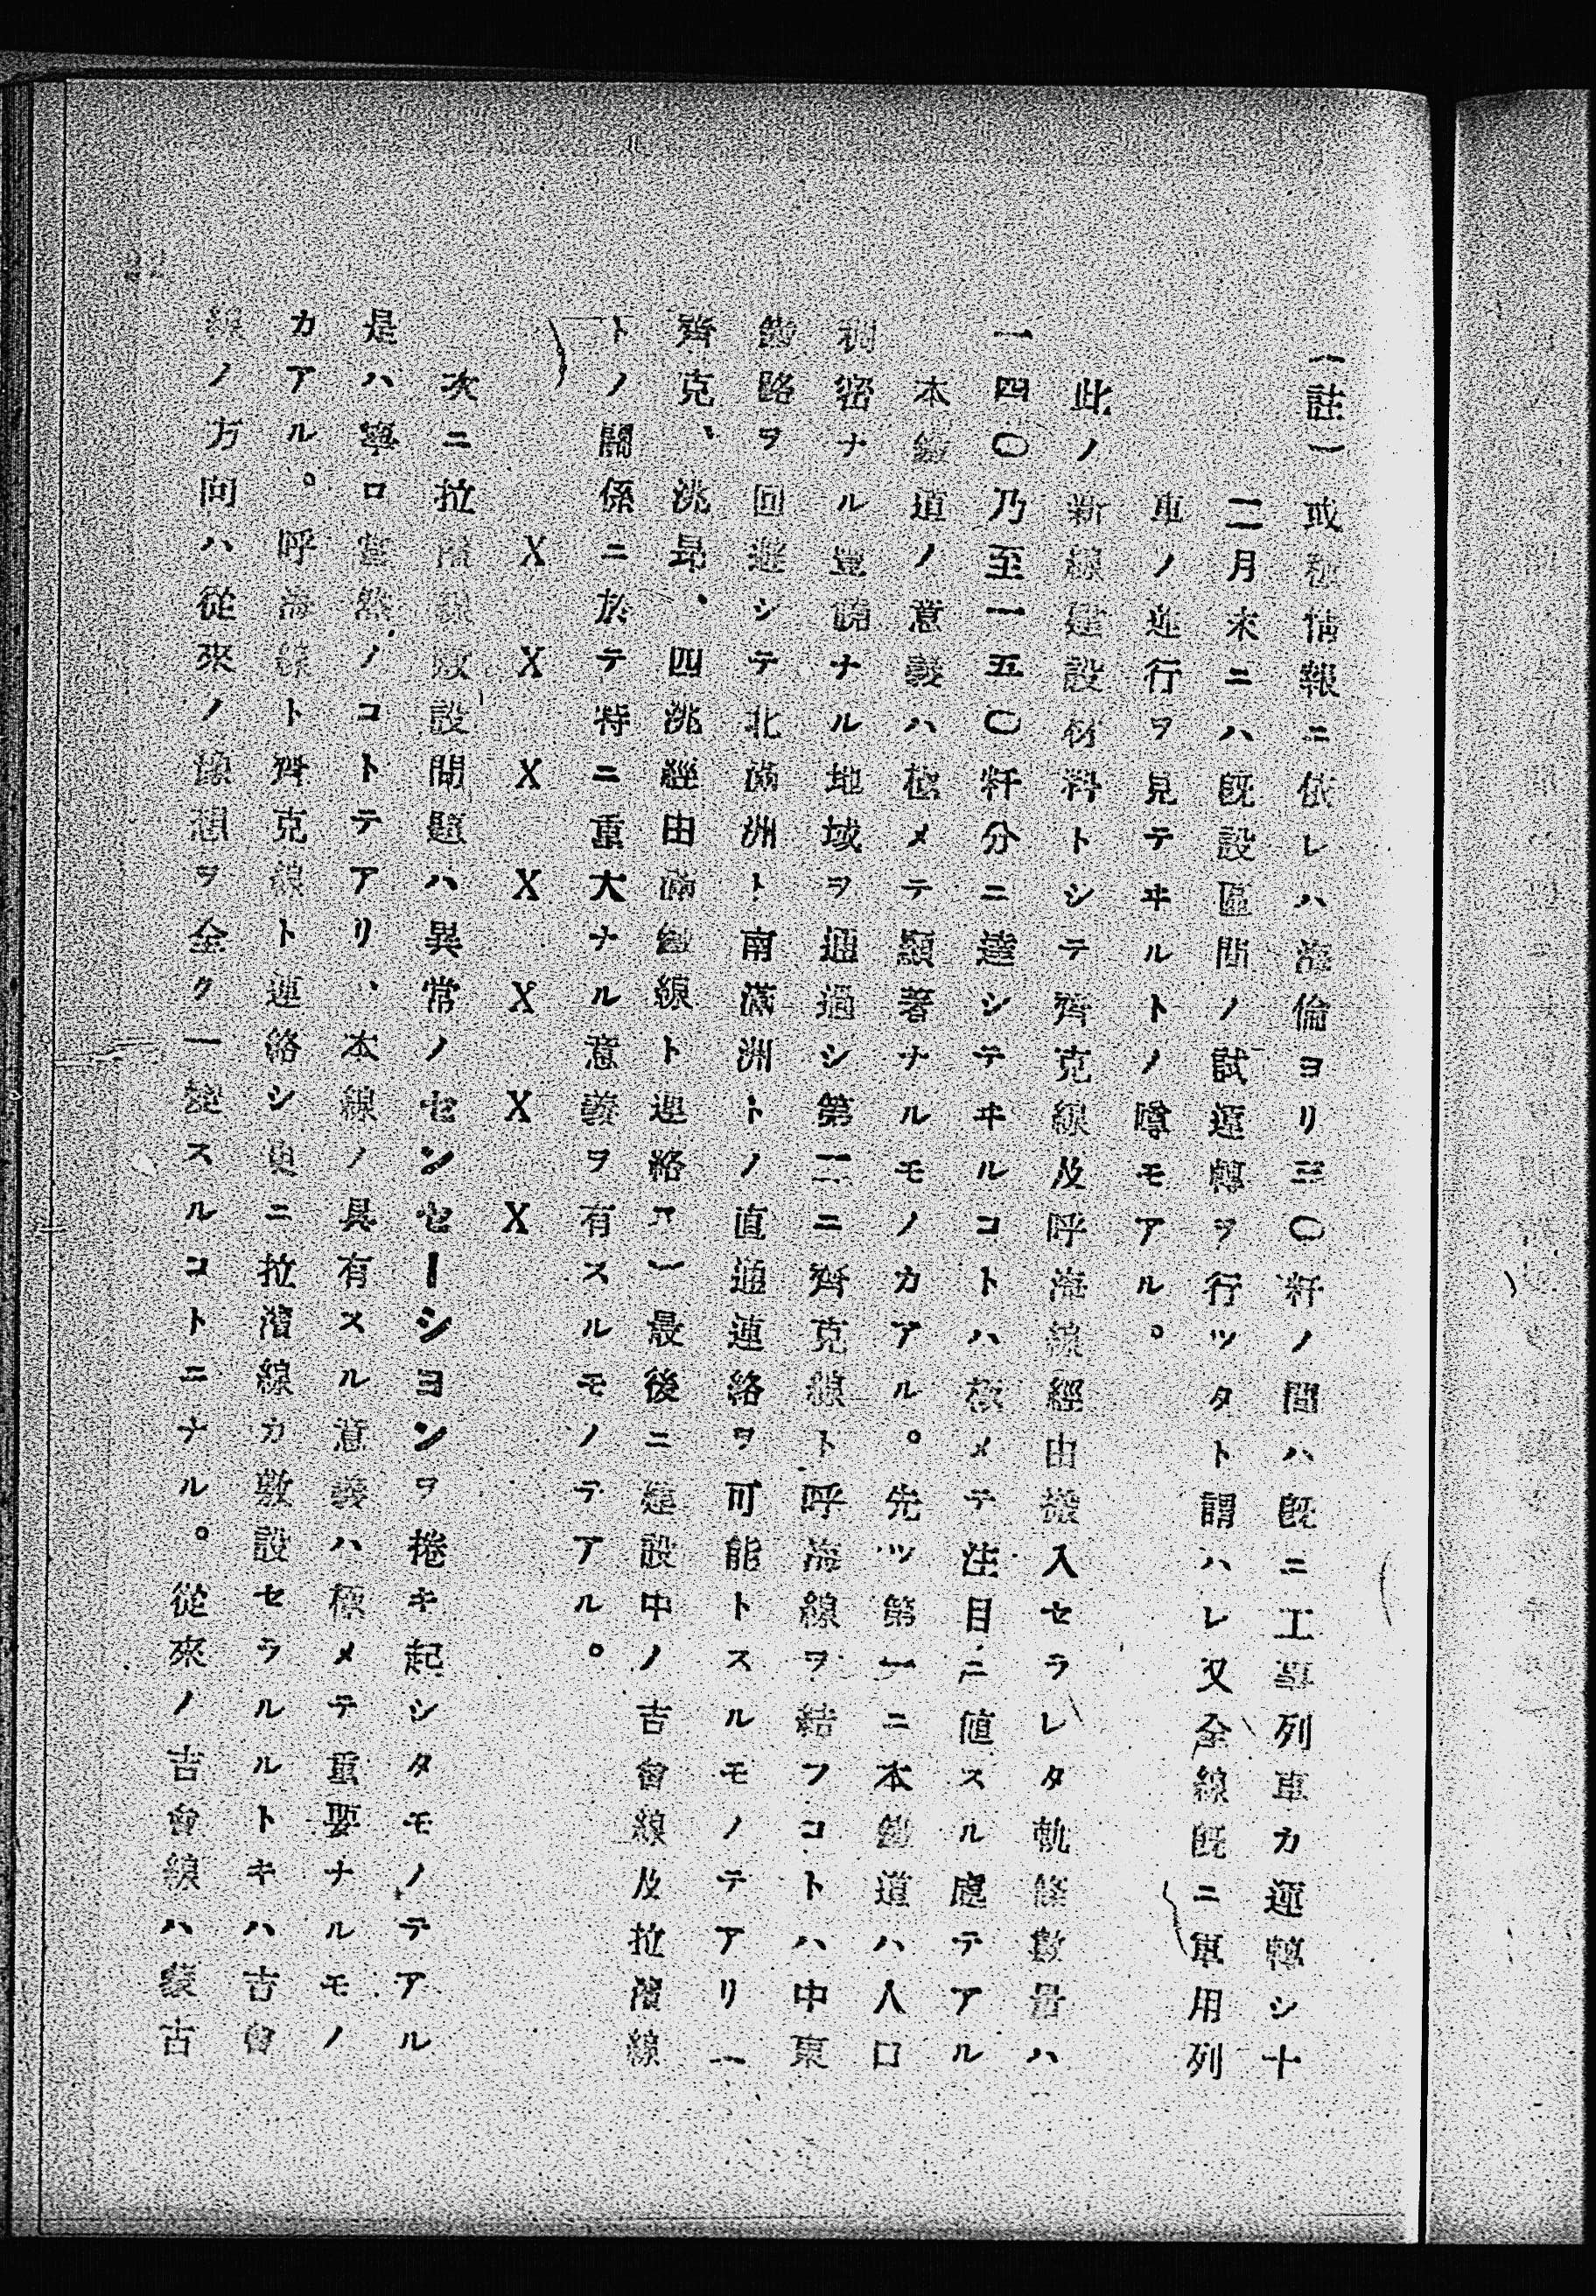 (註) 或種情報ニ依レハ海倫ヨリ三〇粁ノ間ハ既ニ工事列車カ運轉シ十
二月末ニハ既設區間ノ試運轉ヲ行ツタト謂ハレ又全線既ニ軍用列
車ノ運行ヲ見テヰルトノ噂モアル。
此ノ新線建設材料トシテ齊克線及呼海線經由搬入セラレタ軌條數量ハ
一四〇乃至一五〇粁分ニ達シテヰルコトハ極メテ注目ニ値スル處テアル
本鐵道ノ意義ハ極メテ顯著ナルモノカアル。先ツ第一ニ本鐵道ハ人口
稠密ナル豊饒ナル地域ヲ通過シ第二ニ齊克線ト呼海線ヲ結フコトハ中東
鐵路ヲ回避シテ北滿洲ト南滿洲トノ直通連絡ヲ可能トスルモノテアリ(
齊克、洮昂、四洮經由滿鐵線ト連絡ス)最後ニ建設中ノ吉會線及拉濱線
トノ關係ニ於テ特ニ重大ナル意義ヲ有スルモノテアル。
X X X X X X X
次ニ拉濱線敷設問題ハ異常ノセンセーシヨンヲ捲キ起シタモノテアル
是ハ寧ロ當然ノコトテアリ、本線ノ具有スル意義ハ極メテ重要ナルモノ
カアル。呼海線ト齊克線ト連絡シ更ニ拉濱線カ敷設セラルルトキハ吉會
線ノ方向ハ從來ノ豫想ヲ全ク一變スルコトニナル。從來ノ吉會線ハ蒙古